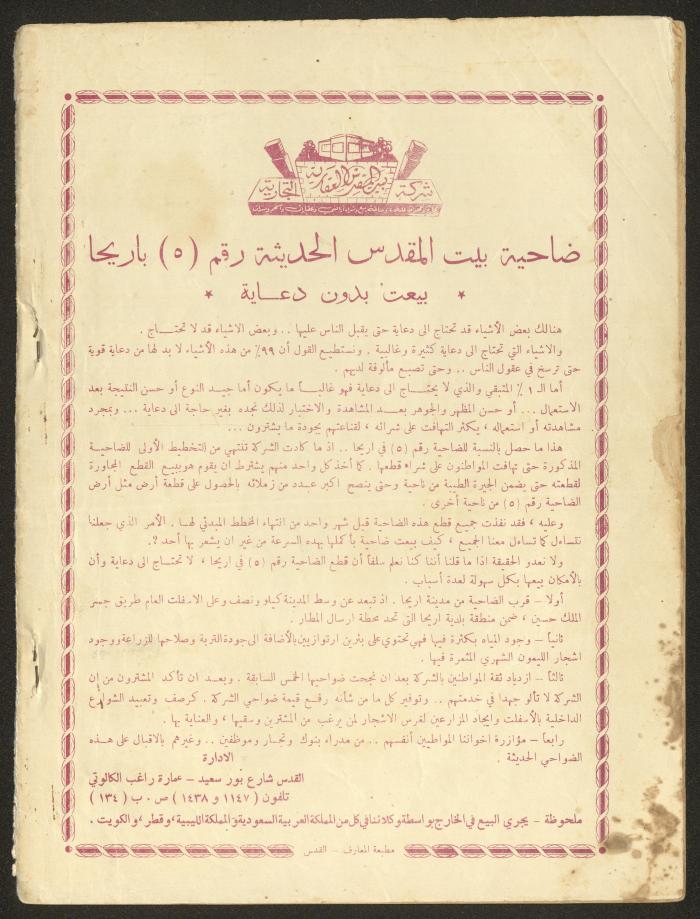 شركة بيت المقدس العقارية التجارية
ضاحية بيت المقدس الحديثة رقم (٥) باريحا
* بيعت بدون دعـاية *
هنالك بعض الأشياء قد تحتاج الى دعاية حتى يقبل الناس عليها .. وبعض الاشياء قد لا تحتـاج .
والاشياء التي تحتاج الى دعاية كثيرة وغالبية . ونستطيع القول أن ٩٩٪ من هذه الأشياء لا بد لها من دعاية قوية
حتى ترسخ في عقول الناس .. وحتى تصبح مألوفة لديهم .
أما الـ ١ ٪ المتبقي والذي لا يحتـاج الى دعاية فهو غالبـاً ما يكون أما جيـد النوع أو حسن النتيجة بعد
الاستعمال ... أو حسن المظهر والجوهر بعـد المشاهدة والاختبار لذلك تجده بغير حاجة الى دعاية ... وبمجرد
مشاهدته أو استعماله ، يكثر التهافت على شرائه ، لقناعتهم بجودة ما يشترون ...
هذا ما حصل بالنسبة للضاحية رقم (٥) في اريحا .. اذ ما كادت الشركة تنتهي من التخطيط الأولى للضاحيـة
المذكورة حتى تهافت المواطنون على شراء قطعها . كما أخذ كل واحد منهم يشترط ان يقوم هو ببيع القطع المجاورة
لقطعته حتى يضمن الجيرة الطيبة من ناحية وحتى ينصح اكبر عـدد من زملائه بالحصول على قطعة أرض مثل أرض
الضاحية رقم (٥) من ناحية أخرى .
وعليه ، فقد نفذت جميـع قطع هذه الضاحية قبل شهر واحد من انتهاء المخطط المبدئي لهـا . الأمر الذي جعلنا
نتساءل كما تساءل معنا الجميع ، كيف بيعت ضاحية بأكملها بهذه السرعة من غير ان يشعر بها أحد ؟.
ولا نعدو الحقيقة اذا ما قلنا أننا كنا نعلم سلفاً أن قطع الضاحية رقم (٥) في اريحا ، لا تحتـاج الى دعاية وأن
بالأمكان بيعها بكل سهولة لعدة أسباب .
أولا - قرب الضاحية من مدينة اريحا . اذ تبعد عن وسط المدينة كيلو ونصف وعلى الاسفلت العام طريق جسر
الملك حسين ، ضمن منطقة بلدية اريحا التي تحد محطة ارسال المطار .
ثانيـاً - وجود المياه بكثرة فيها فهي تحتوي على بئرين ارتوازيين بالأضافة الى جودة التربة وصلاحها للزراعة ووجود
اشجار الليمون الشهري المثمرة فيها .
ثالثـاً - ازدياد ثقة المواطنين بالشركة بعد ان نجحت ضواحيها الخمس السابقة . وبعـد ان تأكد المشترون من ان
الشركة لا تألو جهدا في خدمتهم .. وتوفير كل ما من شأنه رفـع قيمة ضواحي الشركة . كرصف وتعبيد الشوارع
الداخلية بالأسفلت وايجاد المزارعين لغرس الاشجار لمن يرغب من المشترين وسقيها ، والعناية بها .
رابعـاً - مؤازرة اخواننا المواطنين أنفسهم .. من مدراء بنوك وتجـار وموظفين .. وغيرهم بالاقبال على هـذه
الضواحي الحديثة .
الادارة
القدس شارع بور سعيد - عمارة راغب الكالوتي
تلفون ( ١١٤٧ و ١٤٣٨ ) ص . ب ( ١٣٤ )
ملحوظة - يجري البيع في الخارج بواسطة وكلائنا في كل من المملكة العربية السعودية والمملكة الليبية ، وقطر ، والكويت .
مطبعة المعارف - القدس